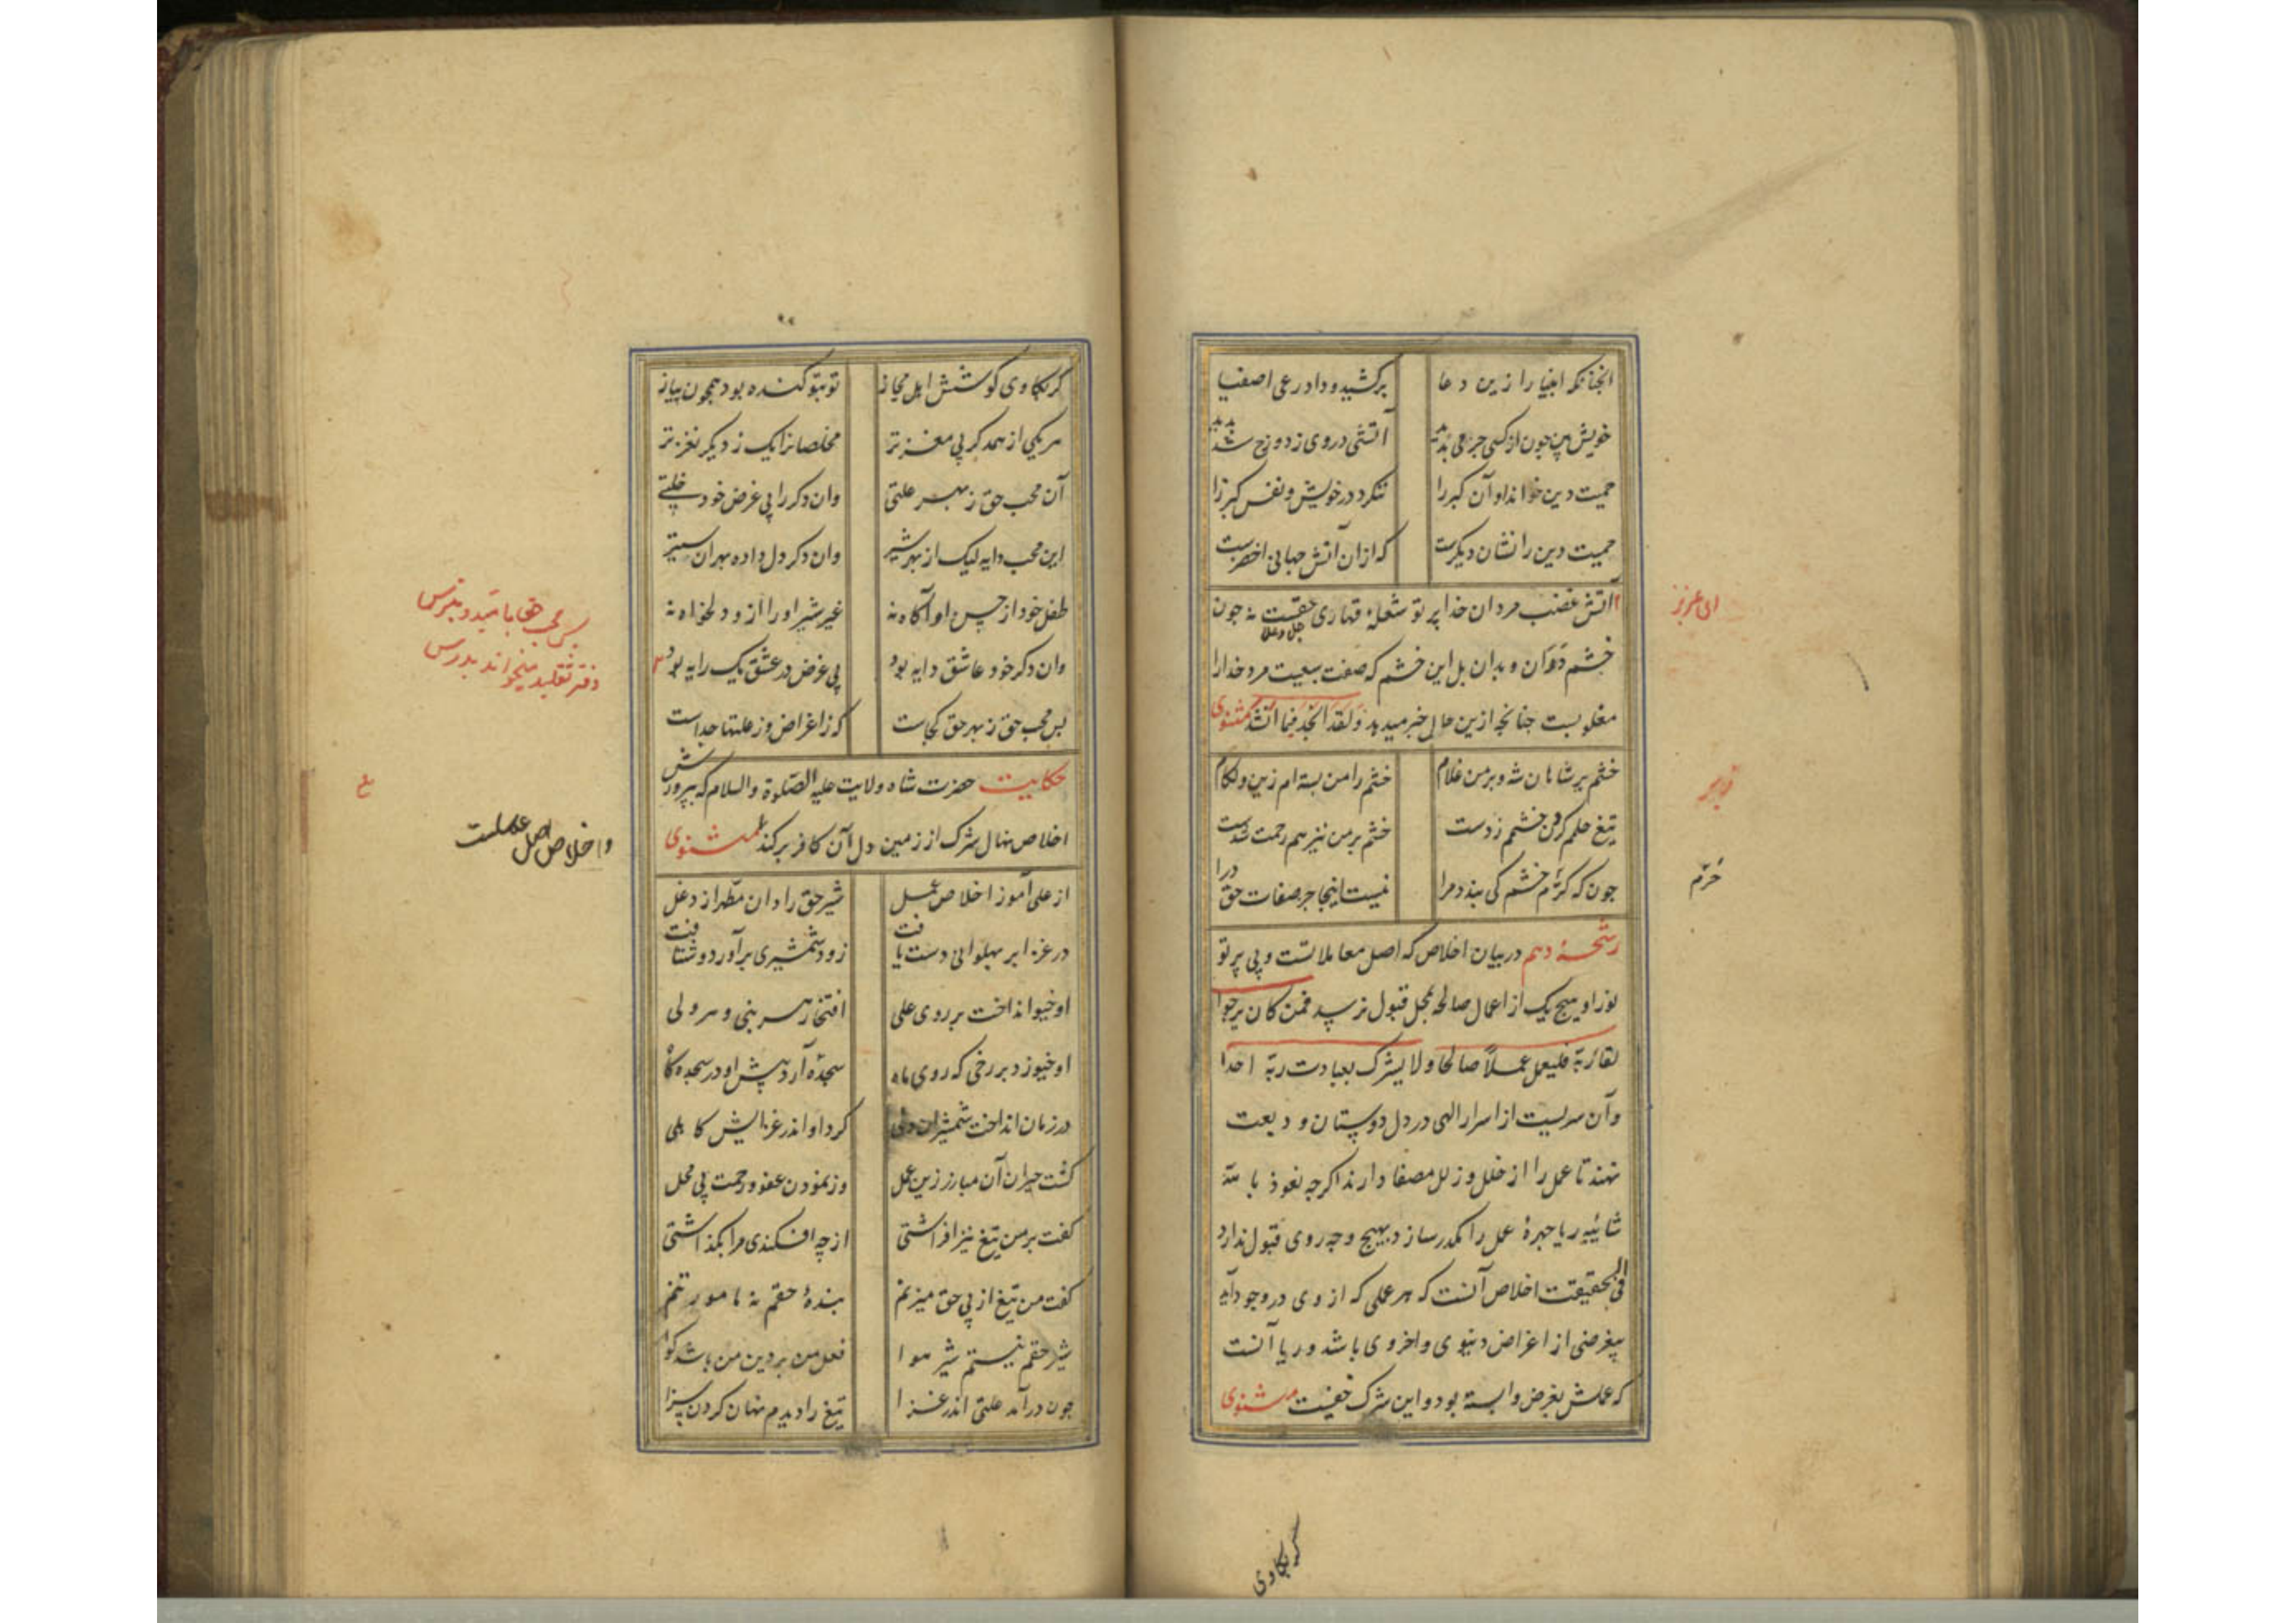 انجنانکه انبیا را زین دعا برکشید و داد رعی اصفیا
خویش بین چون از کسی جرمی بدید آتشی در وی ز دوزخ شد بدید
حمیت دین خواند او آن کبر را ننکرد در خویش و نفس کبر را
حمیت دین را نشان دیکرست که از آن آتش جهانی اخضرست
آتش غضب مردان خدا پرتو شعلهٔ قهاری حقست جل و علا نه جون
خشم ددان و بدان بل این خشم که صفت سبعیت مرد خدا را
مغلوبست جنانجه ازین حال خبر میدهد مثنوی
خشم بر شاهان شه و بر من غلام خشم را من بسته‌ام زین و لکام
تیغ حلمم کردن خشمم زدست خشم بر من نیز هم رحمت شدست
جون که حرم خشم کی بندد مرا نیست اینجا جز صفات حق درا
رشحهٔ دهم در بیان اخلاص که اصل معاملاتست و بی پرتو
نور او هیج یک از اعمال صالحه بمحل قبول نرسد فمن کان یرجوا
لقاء ربه فلیعمل عملاً صالحا ولا یشرک بعبادت ربه احدا
و آن سریست از اسرار الهی در دل دوستان ودیعت
نهند تا عمل را از خلل و زلل مصفا دارند اکرجه نعوذ بالله
شائبهٔ ریا جهرهٔ عمل را مکدر سازد بهیج وجه روی قبول ندارد
فی الحقیقت اخلاص آنست که هر عملی که از وی در وجود آید
بیغرضی از اغراض دنیوی و اخروی باشد و ریا آنست
که عملش بغرض وابسته بود و این شرک خفیست مثنوی
ای عزیز
حرم
کر بکاوی
کر بکاوی کوشش اهل مجاز تو بتو کنده بود همجون پیاز
هر یکی از همدکر بی مغز تر مخلصانرا یک ز دیکر نغز تر
آن محب حق ز بهر علتی وان دکر را بی غرض خود خلتی
این محب دایه لیک از بهر شیر وان دکر دل داده بهر آن ستیر
طفل خود از حسن او آکاه نه غیر شیر او را ازو دلخواه نه
وان دکر خود عاشق دایه بود بی غرض در عشق یک رایه بود
بس محب حق ز بهر حق کجاست که ز اغراض و ز علتها جداست
حکایت حضرت شاه ولایت علیه الصلوة والسلام که ببرورش
اخلاص نهال شرک از زمین دل آن کافر برکند مثنوی
از علی آموز اخلاص عمل شیر حق را دان مطهر از دغل
در غزا بر بهلوانی دست یافت زود شمشیری برآورد و شتافت
او خیو انداخت بر روی علی افتخار هر نبی و هر ولی
او خیو زد بر رخی که روی ماه سجده آرد پیش او در سجده کاه
در زمان انداخت شمشیر آن علی کرد او اندر غزایش کاهلی
کشت حیران آن مبارز زین عمل وز نمودن عفو و رحمت بی محل
کفت بر من تیغ تیز افراشتی از چه افکندی مرا بکذاشتی
کفت من تیغ از پی حق میزنم بندهٔ حقم نه مامور تنم
شیر حقم نیستم شیر هوا فعل من بر دین من باشد کوا
جون درآمد علتی اندر غزا تیغ را دیدم نهان کردن سزا
بس محب حق باامید و بترس
دفتر تقلید میخواند بدرس
و اخلاص اصل عملست